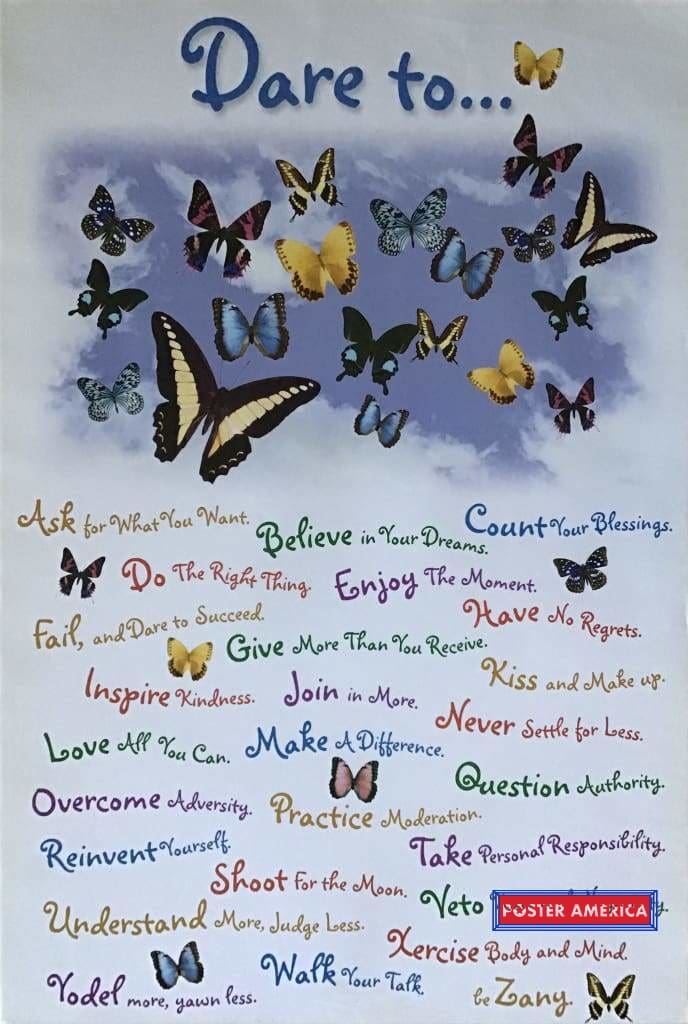 Dare to...
Ask for What You Want.
Believe in Your Dreams.
Count Your Blessings.
Do The Right Thing.
Enjoy The Moment.
Fail, and Dare to Succeed.
Give More Than You Receive.
Have No Regrets.
Inspire Kindness.
Join in More.
Kiss and Make up.
Love All You Can.
Make A Difference.
Never Settle for Less.
Overcome Adversity.
Practice Moderation.
Question Authority.
Reinvent Yourself.
Shoot For the Moon.
Take Personal Responsibility.
Understand More, Judge Less.
Veto
POSTER AMERICA
Walk Your Talk.
Xercise Body and Mind.
Yodel more, yawn less.
be Zany.